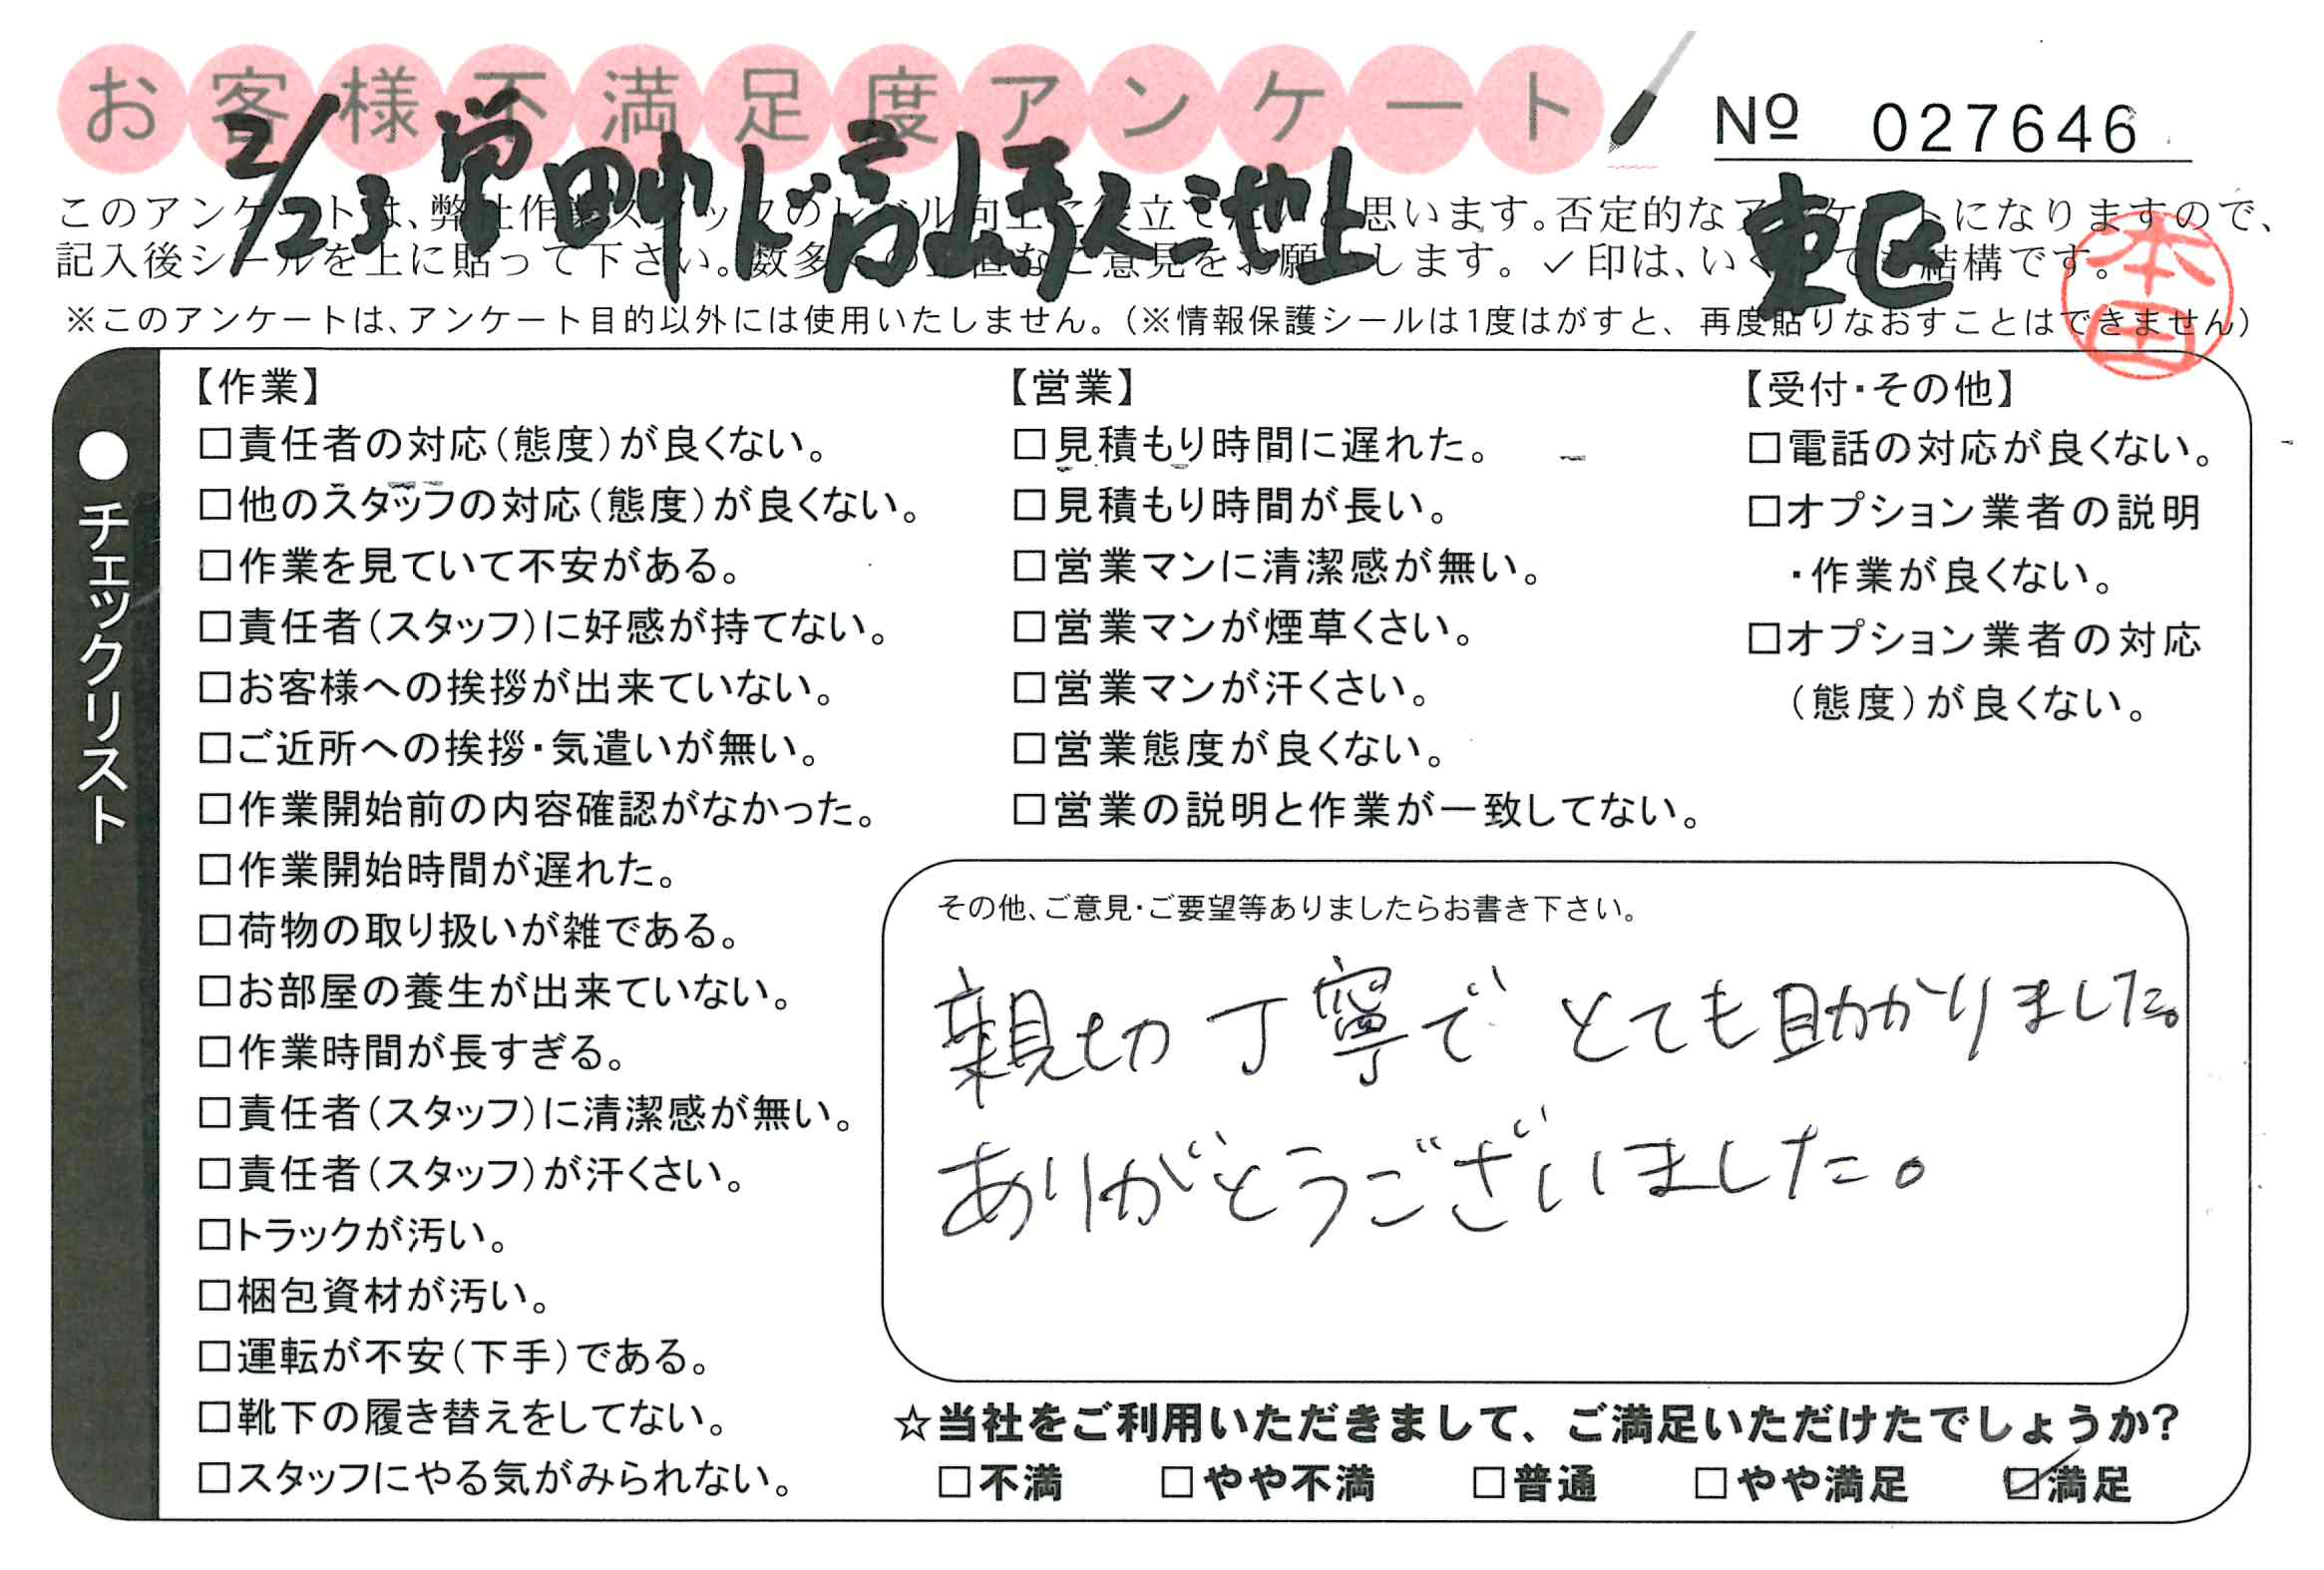 お客様不満足度アンケート
№ 027646
2/23 単 田中 ド高山 手ス 池上 東区
このアンケートは、弊社作業スタッフのレベル向上に役立てたいと思います。否定的なアンケートになりますので、
記入後シールを上に貼って下さい。数多くの正直なご意見をお願いします。✓印は、いくつでも結構です。
本田
※このアンケートは、アンケート目的以外には使用いたしません。（※情報保護シールは1度はがすと、再度貼りなおすことはできません）
●チェックリスト
【作業】
□責任者の対応（態度）が良くない。
□他のスタッフの対応（態度）が良くない。
□作業を見ていて不安がある。
□責任者（スタッフ）に好感が持てない。
□お客様への挨拶が出来ていない。
□ご近所への挨拶・気遣いが無い。
□作業開始前の内容確認がなかった。
□作業開始時間が遅れた。
□荷物の取り扱いが雑である。
□お部屋の養生が出来ていない。
□作業時間が長すぎる。
□責任者（スタッフ）に清潔感が無い。
□責任者（スタッフ）が汗くさい。
□トラックが汚い。
□梱包資材が汚い。
□運転が不安（下手）である。
□靴下の履き替えをしてない。
□スタッフにやる気がみられない。
【営業】
□見積もり時間に遅れた。
□見積もり時間が長い。
□営業マンに清潔感が無い。
□営業マンが煙草くさい。
□営業マンが汗くさい。
□営業態度が良くない。
□営業の説明と作業が一致してない。
【受付・その他】
□電話の対応が良くない。
□オプション業者の説明
・作業が良くない。
□オプション業者の対応
（態度）が良くない。
その他、ご意見・ご要望等ありましたらお書き下さい。
親切丁寧で とても助かりました。
ありがとうございました。
☆当社をご利用いただきまして、ご満足いただけたでしょうか？
□不満 □やや不満 □普通 □やや満足 ☑満足